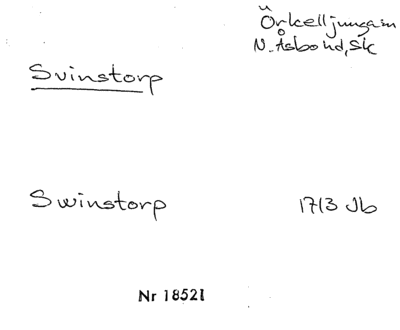 Örkelljunga sn
N. Åsbo hd, Sk
Svinstorp
Swinstorp 1713 Jb
Nr 18521